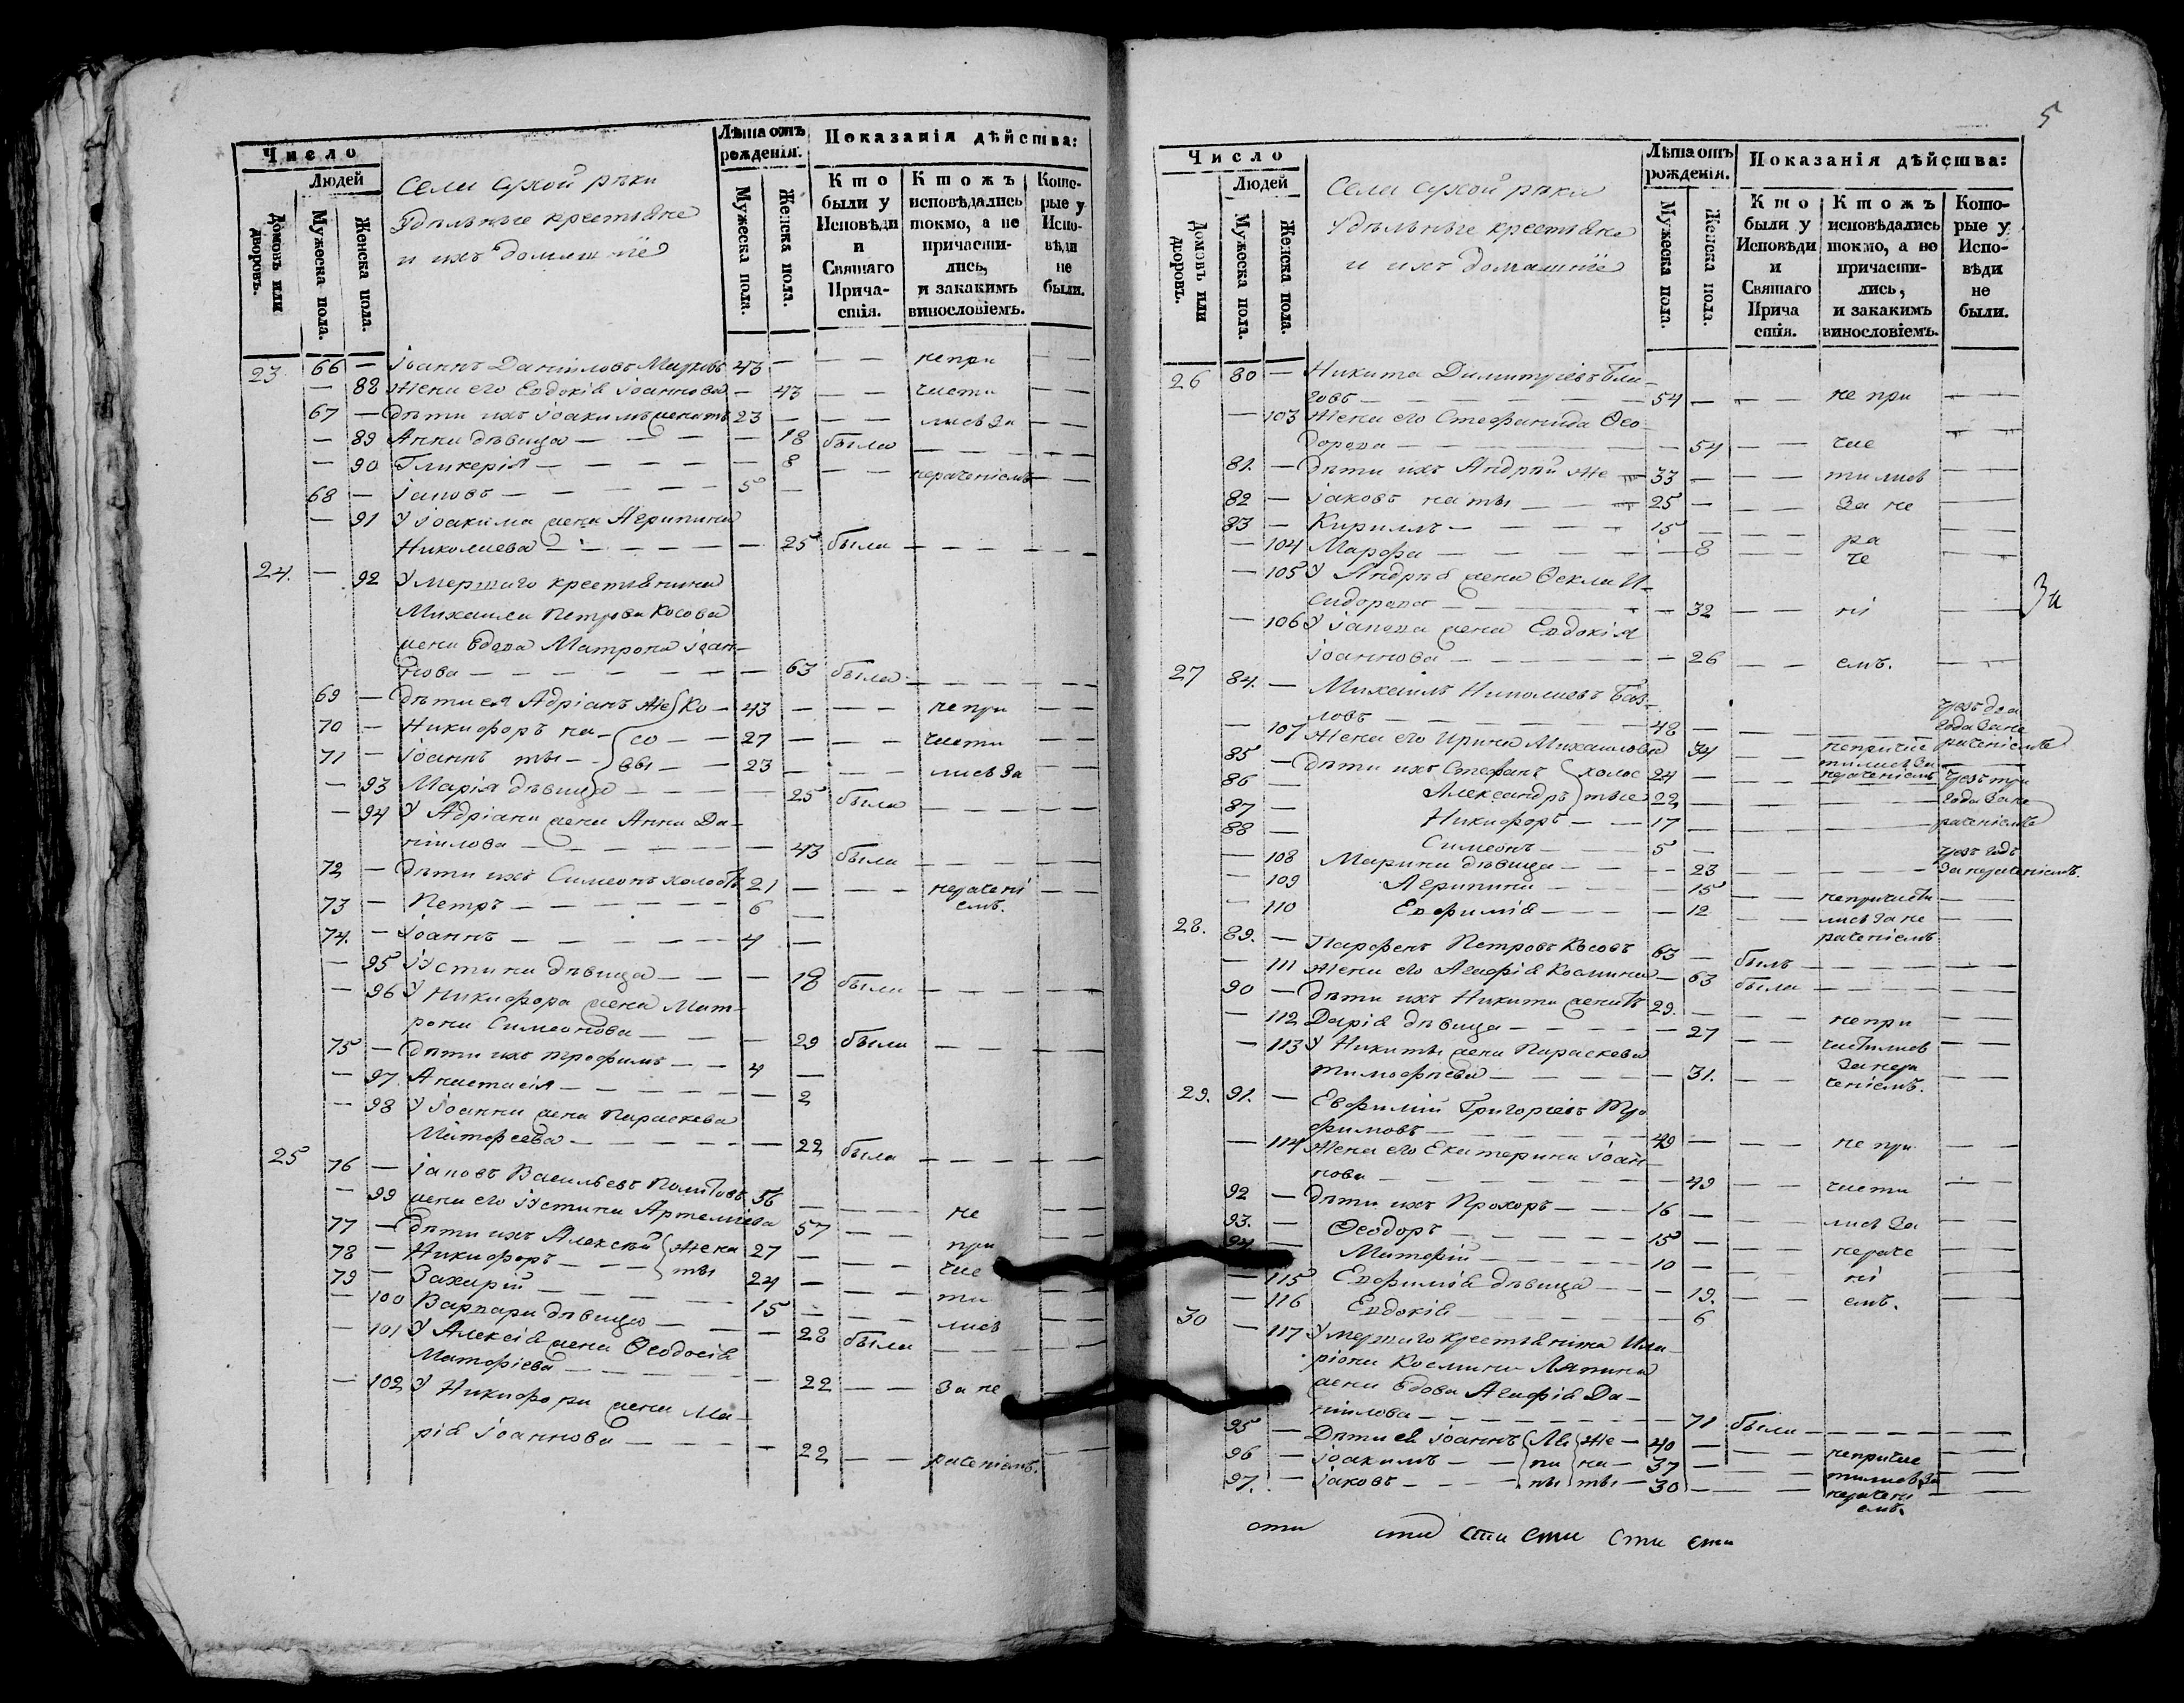 Число
Людей
Домовъ или дворовъ.
Мужеска пола.
Женска пола.
Села сухой рѣки
Удѣльные крестьяне
и ихъ домашнїе
Лѣта отъ рожденія.
Мужеска пола.
Женска пола.
Показанія дѣйства:
Кто были у Исповѣди и Святаго Прича-стія.
Ктожъ исповѣдались токмо, а не причасти-лись, и закакимъ винословіемъ.
Кото-рые у Испо-вѣди не были.
23 66 — Іоаннъ Даніиловъ 43 — — — непри — —
— 88 Жена его Евдокія Іоаннова — 43 — — части — —
67 — Дѣти ихъ Іоакимъ женатъ 23 — — — лись За — —
— 89 Анна дѣвица — — — — 18 была — — — — —
— 90 Гликерія — — — — — 8 — — нераченіемъ — —
68 — Іаковъ — — — — — 5 —
— 91 У Іоакима жена Агрипина
Николаева — — — — — — 25 была — — — — —
24. — 92 Умершаго крестьянина
Михаила Петрова Косова
жена вдова Матрона Іоан-
нова — — — — — — 63 была — — — — —
69 — Дѣти ея Адріанъ Же Ко — 43 — — — непри — —
70 — Никифоръ на- со — — 27 — — — части — —
71 — Іоаннъ ты — вы — — 23 — — — лись За — —
— 93 Марія дѣвица — — — — 25 была — — — — —
— 94 У Адріана жена Анна Да-
ніилова — — — — — — 43 была — — — — —
72 — Дѣти ихъ Симеонъ холостъ 21 — — — нерачені — —
емъ.
73 — Петръ — — — — — — 6 —
74. — Іоаннъ — — — — — — 4 —
— 95 Іустина дѣвица — — — — 18 была — — — — —
— 96 У Никифора жена Мат-
рона Симеонова — — — 29 была — — — — —
75 — Дѣти ихъ Трофимъ — — 4 —
— 97. Анастасія — — — — — 2
— 98 У Іоанна жена Параскева
Матфеева — — — — — — 22 была — — — — —
25 76 — Іаковъ Васильевъ 56 — — — не — —
— 99 жена его Іустина Артеміева 57 — — при
77 — Дѣти ихъ Алексѣй Жена 27 — — — час
78 — Никифоръ — — — ты 24 — — — ти
79 — Захарій — — — — — 15 — — — лись
— 100 Варвара дѣвица — — — 28 была — — — — —
— 101 У Алексія жена Ѳеодосія
Матфіева — — — — — 22 — — За не —
— 102 У Никифора жена Ма-
рія Іоаннова — — — — — 22 — — раченіемъ. — —
5
Число
Людей
Домовъ или дворовъ.
Мужеска пола.
Женска пола.
Села сухой рѣки
Удѣльные крестьяне
и ихъ домашнїе
Лѣта отъ рожденія.
Мужеска пола.
Женска пола.
Показанія дѣйства:
Кто были у Исповѣди и Святаго Прича стія.
Ктожъ исповѣдались токмо, а не причасти-лись, и закакимъ винословіемъ.
Кото-рые у Испо-вѣди не были.
26 80 — Никита Димитріевъ Бла-
зовъ — — — — — — 54 — — — не при — —
— 103 Жена его Стефанида Ѳео-
дорова — — — — — — 54 — — час — —
81. — Дѣти ихъ Андрей Же — 33 — — — тились — —
82 — Іаковъ наты — — — 25 — — — За не — —
83 — Кирилъ — — — — 15 — — — ра — —
— 104 Марфа — — — — — 8 — — че — —
— 105 У Андрея жена Ѳекла И-
сидорова — — — — — 32 — — ні — —
За
— 106 У Іакова жена Евдокія
Іоаннова — — — — — 26 — — емъ. — —
27 84. — Михаилъ Николаевъ
ловъ — — — — — 48 — — — — чрезъ два года За не раченіемъ
— 107 Жена его Ирина Михаилова 34 — — непричас тились За нераченіемъ
85 — Дѣти ихъ Стефанъ холос 24 — — — — чрезъ три
86 — Александръ тые 22 — — — — года За не
87 — Никифоръ — — 17 — — — — раченіемъ
88 — Симеонъ — — — 5 —
— 108 Марина дѣвица — — — 23 — — — чрезъ годъ За нераченіемъ.
— 109 Агрипина — — — — 15 — — непричасти — —
— 110 Евфимія — — — — 12 — — лись За не раченіемъ — —
28. 89. — Парфенъ Петровъ Косовъ 63 — былъ — — — — —
— 111 Жена его Агафія Космина — 63 была — — — — —
90 — Дѣти ихъ Никита женатъ 29. — — — непри — —
— 112 Дарія дѣвица — — — — 27 — — частились — —
— 113 У Никиты жена Параскева
Тимофѣева — — — — — 31. — — За нера ченіемъ. — —
29. 91. — Евфимій Григоріевъ Тро
фимовъ — — — — — 49 — — — не при — —
— 114 Жена его Екатерина Іоан-
нова — — — — — — 49 — — части — —
92 — Дѣти ихъ Прохоръ — — 16 — — — лись За — —
93. — Ѳеодоръ — — — — 15 — — — нераче — —
94. — Матфій — — — — 10 — — — ні — —
— 115 Евфимія дѣвица — — — 19. — — емъ. — —
— 116 Евдокія — — — — — 6
30 — 117 Умершаго крестьянина Ила-
ріона Космина Лапина
жена вдова Агафія Да-
ніилова — — — — — — 71 была — — — — —
95 — Дѣти ея Іоаннъ Ла Же — 40 — — — непричас — —
96 — Іоакимъ — — пи на — 37 — — — тились За — —
97. — Іаковъ — — — ны ты — 30 — — — нерачені емъ. — —
сти сти сти сти сти сти